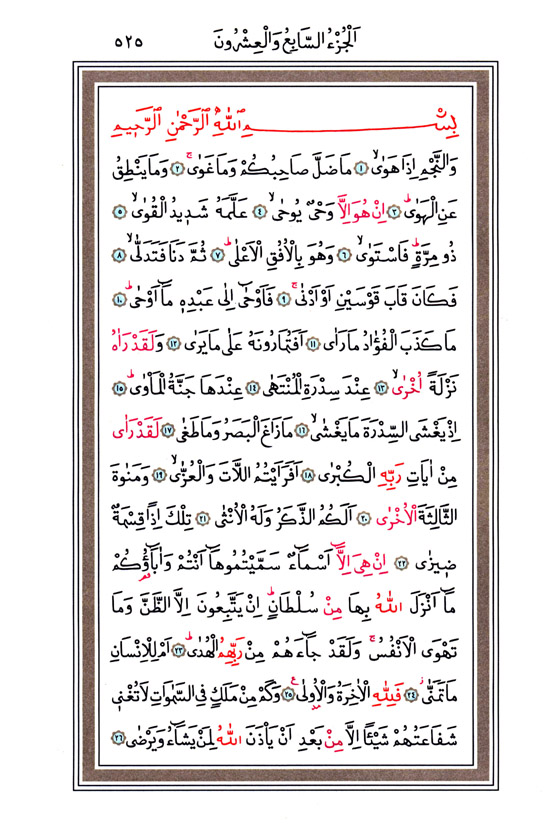 اَلْجُزْءُ السَّابِعُ وَالْعِشْرُونَ ٥٢٥
بِسْمِ اللّٰهِ الرَّحْمٰنِ الرَّحٖيمِ
وَالنَّجْمِ اِذَا هَوٰىۙ ﴿١﴾ مَا ضَلَّ صَاحِبُكُمْ وَمَا غَوٰىۚ ﴿٢﴾ وَمَا يَنْطِقُ
عَنِ الْهَوٰىۜ ﴿٣﴾ اِنْ هُوَ اِلَّا وَحْیٌ يُوحٰىۙ ﴿٤﴾ عَلَّمَهُ شَدٖيدُ الْقُوٰىۙ ﴿٥﴾
ذُو مِرَّةٍۜ فَاسْتَوٰىۙ ﴿٦﴾ وَهُوَ بِالْاُفُقِ الْاَعْلٰىۜ ﴿٧﴾ ثُمَّ دَنَا فَتَدَلّٰىۙ ﴿٨﴾
فَكَانَ قَابَ قَوْسَيْنِ اَوْ اَدْنٰىۚ ﴿٩﴾ فَاَوْحٰٓى اِلٰى عَبْدِهٖ مَٓا اَوْحٰىۜ ﴿١٠﴾
مَا كَذَبَ الْفُؤٰادُ مَا رَاٰى ﴿١١﴾ اَفَتُمَارُونَهُ عَلٰى مَا يَرٰى ﴿١٢﴾ وَلَقَدْ رَاٰهُ
نَزْلَةً اُخْرٰىۙ ﴿١٣﴾ عِنْدَ سِدْرَةِ الْمُنْتَهٰى ﴿١٤﴾ عِنْدَهَا جَنَّةُ الْمَأْوٰىۜ ﴿١٥﴾
اِذْ يَغْشَى السِّدْرَةَ مَا يَغْشٰىۙ ﴿١٦﴾ مَا زَاغَ الْبَصَرُ وَمَا طَغٰى ﴿١٧﴾ لَقَدْ رَاٰى
مِنْ اٰيَاتِ رَبِّهِ الْكُبْرٰى ﴿١٨﴾ اَفَرَاَيْتُمُ اللَّاتَ وَالْعُزّٰىۙ ﴿١٩﴾ وَمَنٰوةَ
الثَّالِثَةَ الْاُخْرٰى ﴿٢٠﴾ اَلَكُمُ الذَّكَرُ وَلَهُ الْاُنْثٰى ﴿٢١﴾ تِلْكَ اِذًا قِسْمَةٌ
ضٖيزٰى ﴿٢٢﴾ اِنْ هِیَ اِلَّٓا اَسْمَٓاءٌ سَمَّيْتُمُوهَٓا اَنْتُمْ وَاٰبَٓاؤُ۬كُمْ
مَٓا اَنْزَلَ اللّٰهُ بِهَا مِنْ سُلْطَانٍۜ اِنْ يَتَّبِعُونَ اِلَّا الظَّنَّ وَمَا
تَهْوَى الْاَنْفُسُۚ وَلَقَدْ جَٓاءَهُمْ مِنْ رَبِّهِمُ الْهُدٰىۜ ﴿٢٣﴾ اَمْ لِلْاِنْسَانِ
مَا تَمَنّٰىۘ ﴿٢٤﴾ فَلِلّٰهِ الْاٰخِرَةُ وَالْاُو۫لٰى۟ ﴿٢٥﴾ وَكَمْ مِنْ مَلَكٍ فِى السَّمٰوَاتِ لَا تُغْنٖى
شَفَاعَتُهُمْ شَيْـًٔا اِلَّا مِنْ بَعْدِ اَنْ يَأْذَنَ اللّٰهُ لِمَنْ يَشَٓاءُ وَيَرْضٰى ﴿٢٦﴾